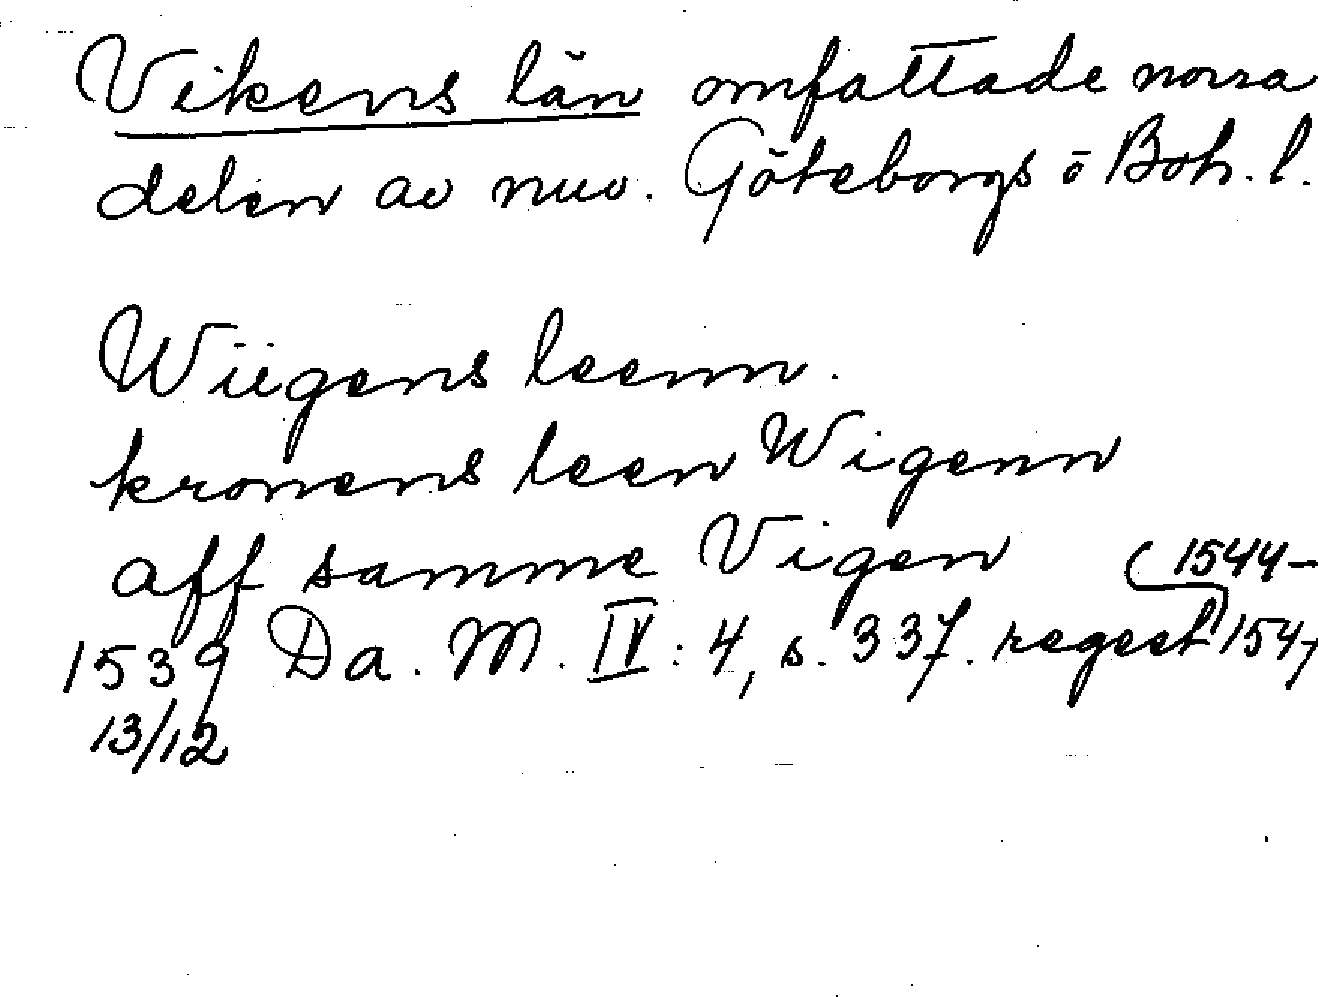 Vikens län omfattade norra
delen av nuv. Göteborgs o Boh. l.
Wiigens leenn.
kronens leen Wigenn
aff samme Vigen (1544-
1539 Da. M. IV: 4, s. 337. regest 154
13/12